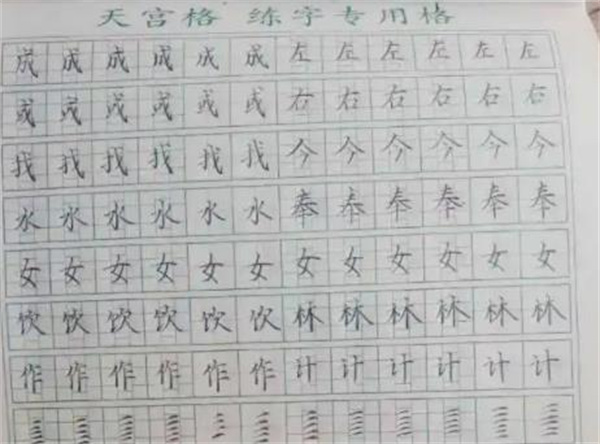 天宫格 练字专用格
成成成成成成左左左左左左
或或或或或或右右右右右右
找找找找找找今今今今今今
水水水水水水奉奉奉奉奉奉
女女女女女女女女女女女女
饮饮饮饮饮饮林林林林林林
作作作作作作计计计计计计